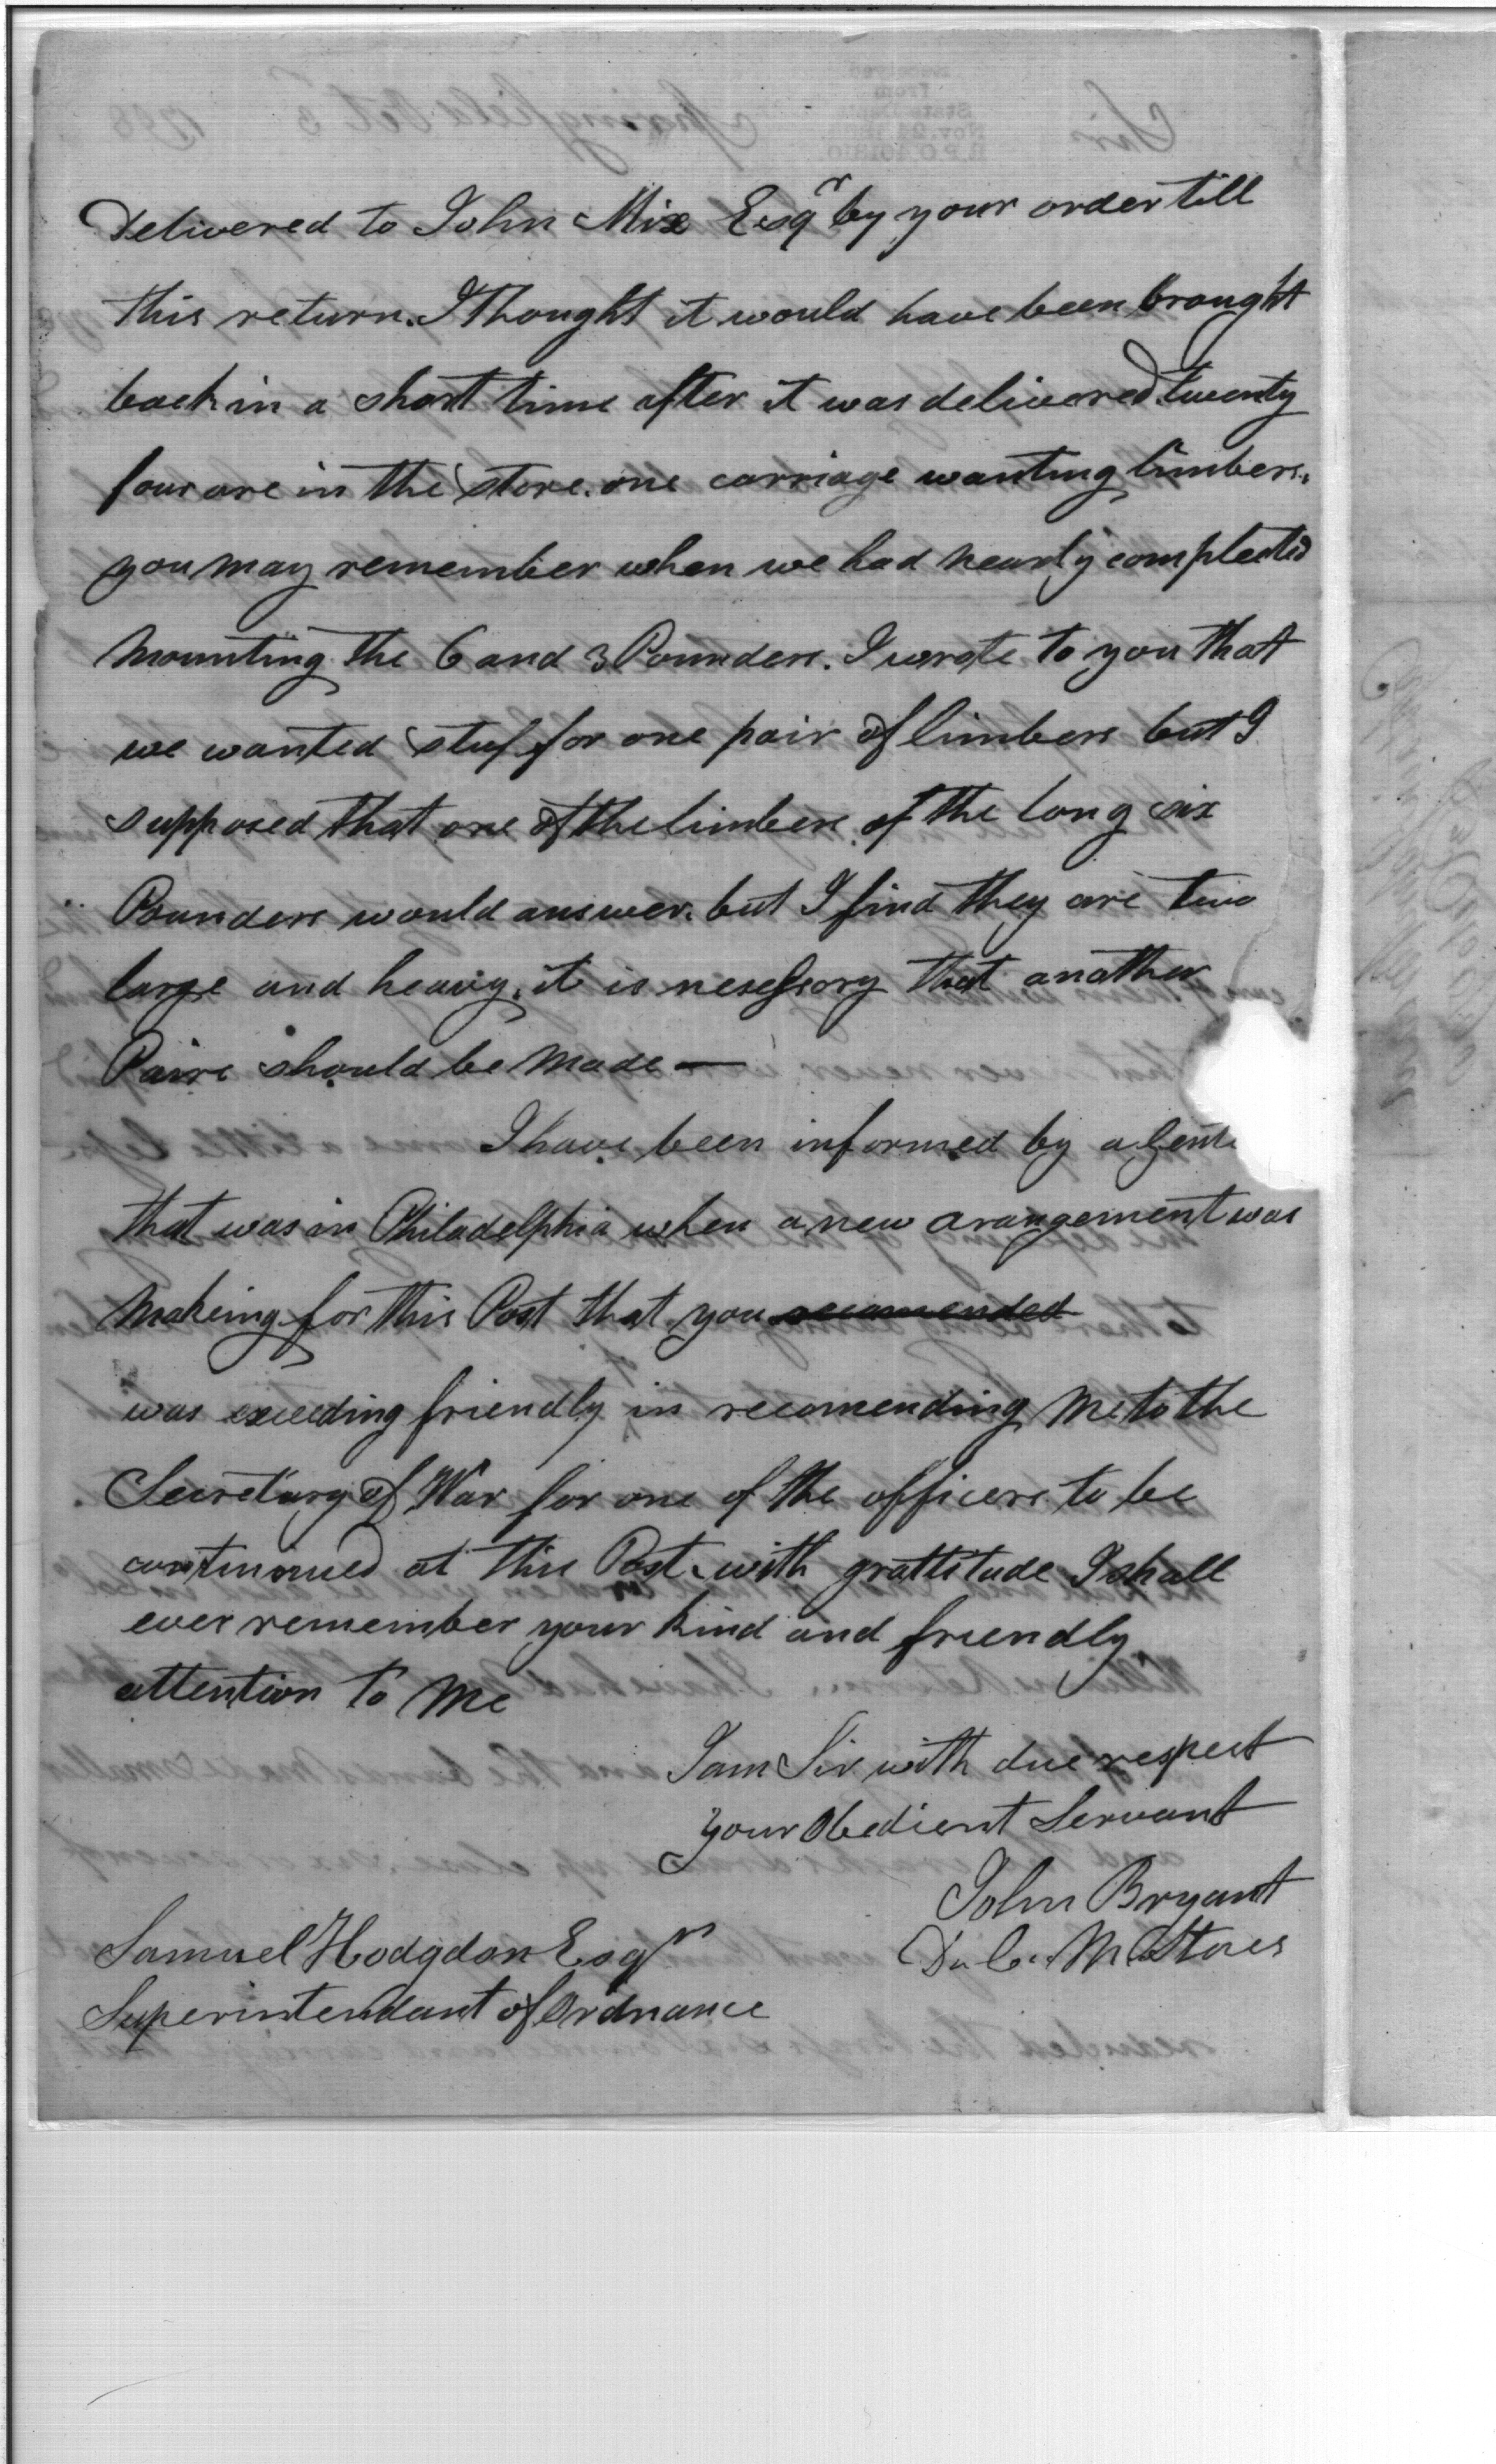 Delivered to John Mix Esqr by your order till
this return. I thought it would have been brought
back in a short time after it was delivered. twenty
four are in the store. one carriage wanting limbers.
you may remember when we had nearly compleated
mounting the 6 and 3 Pounders. I wrote to you that
we wanted stuf for one pair of limbers but I
supposed that one of the limbers of the long six
Pounders would answer. but I find they are two
large and heavy. it is nesessory that another
Paire should be made —
I have been informed by a Gent
that was in Philadelphia when a new arangement was
makeing for this Post that you recomended
was exceeding friendly in recomending me to the
Secretary of War for one of the officers to be
continoued at this Post. with grattitude I shall
ever remember your kind and friendly
attention to me
I am Sir with due respect
your Obedient Servant
John Bryant
M Stores
Samuel Hodgdon Esqr
Superintendant of Ordnance
Sir Springfield Oct 5 1798
Received
from
State Dept.